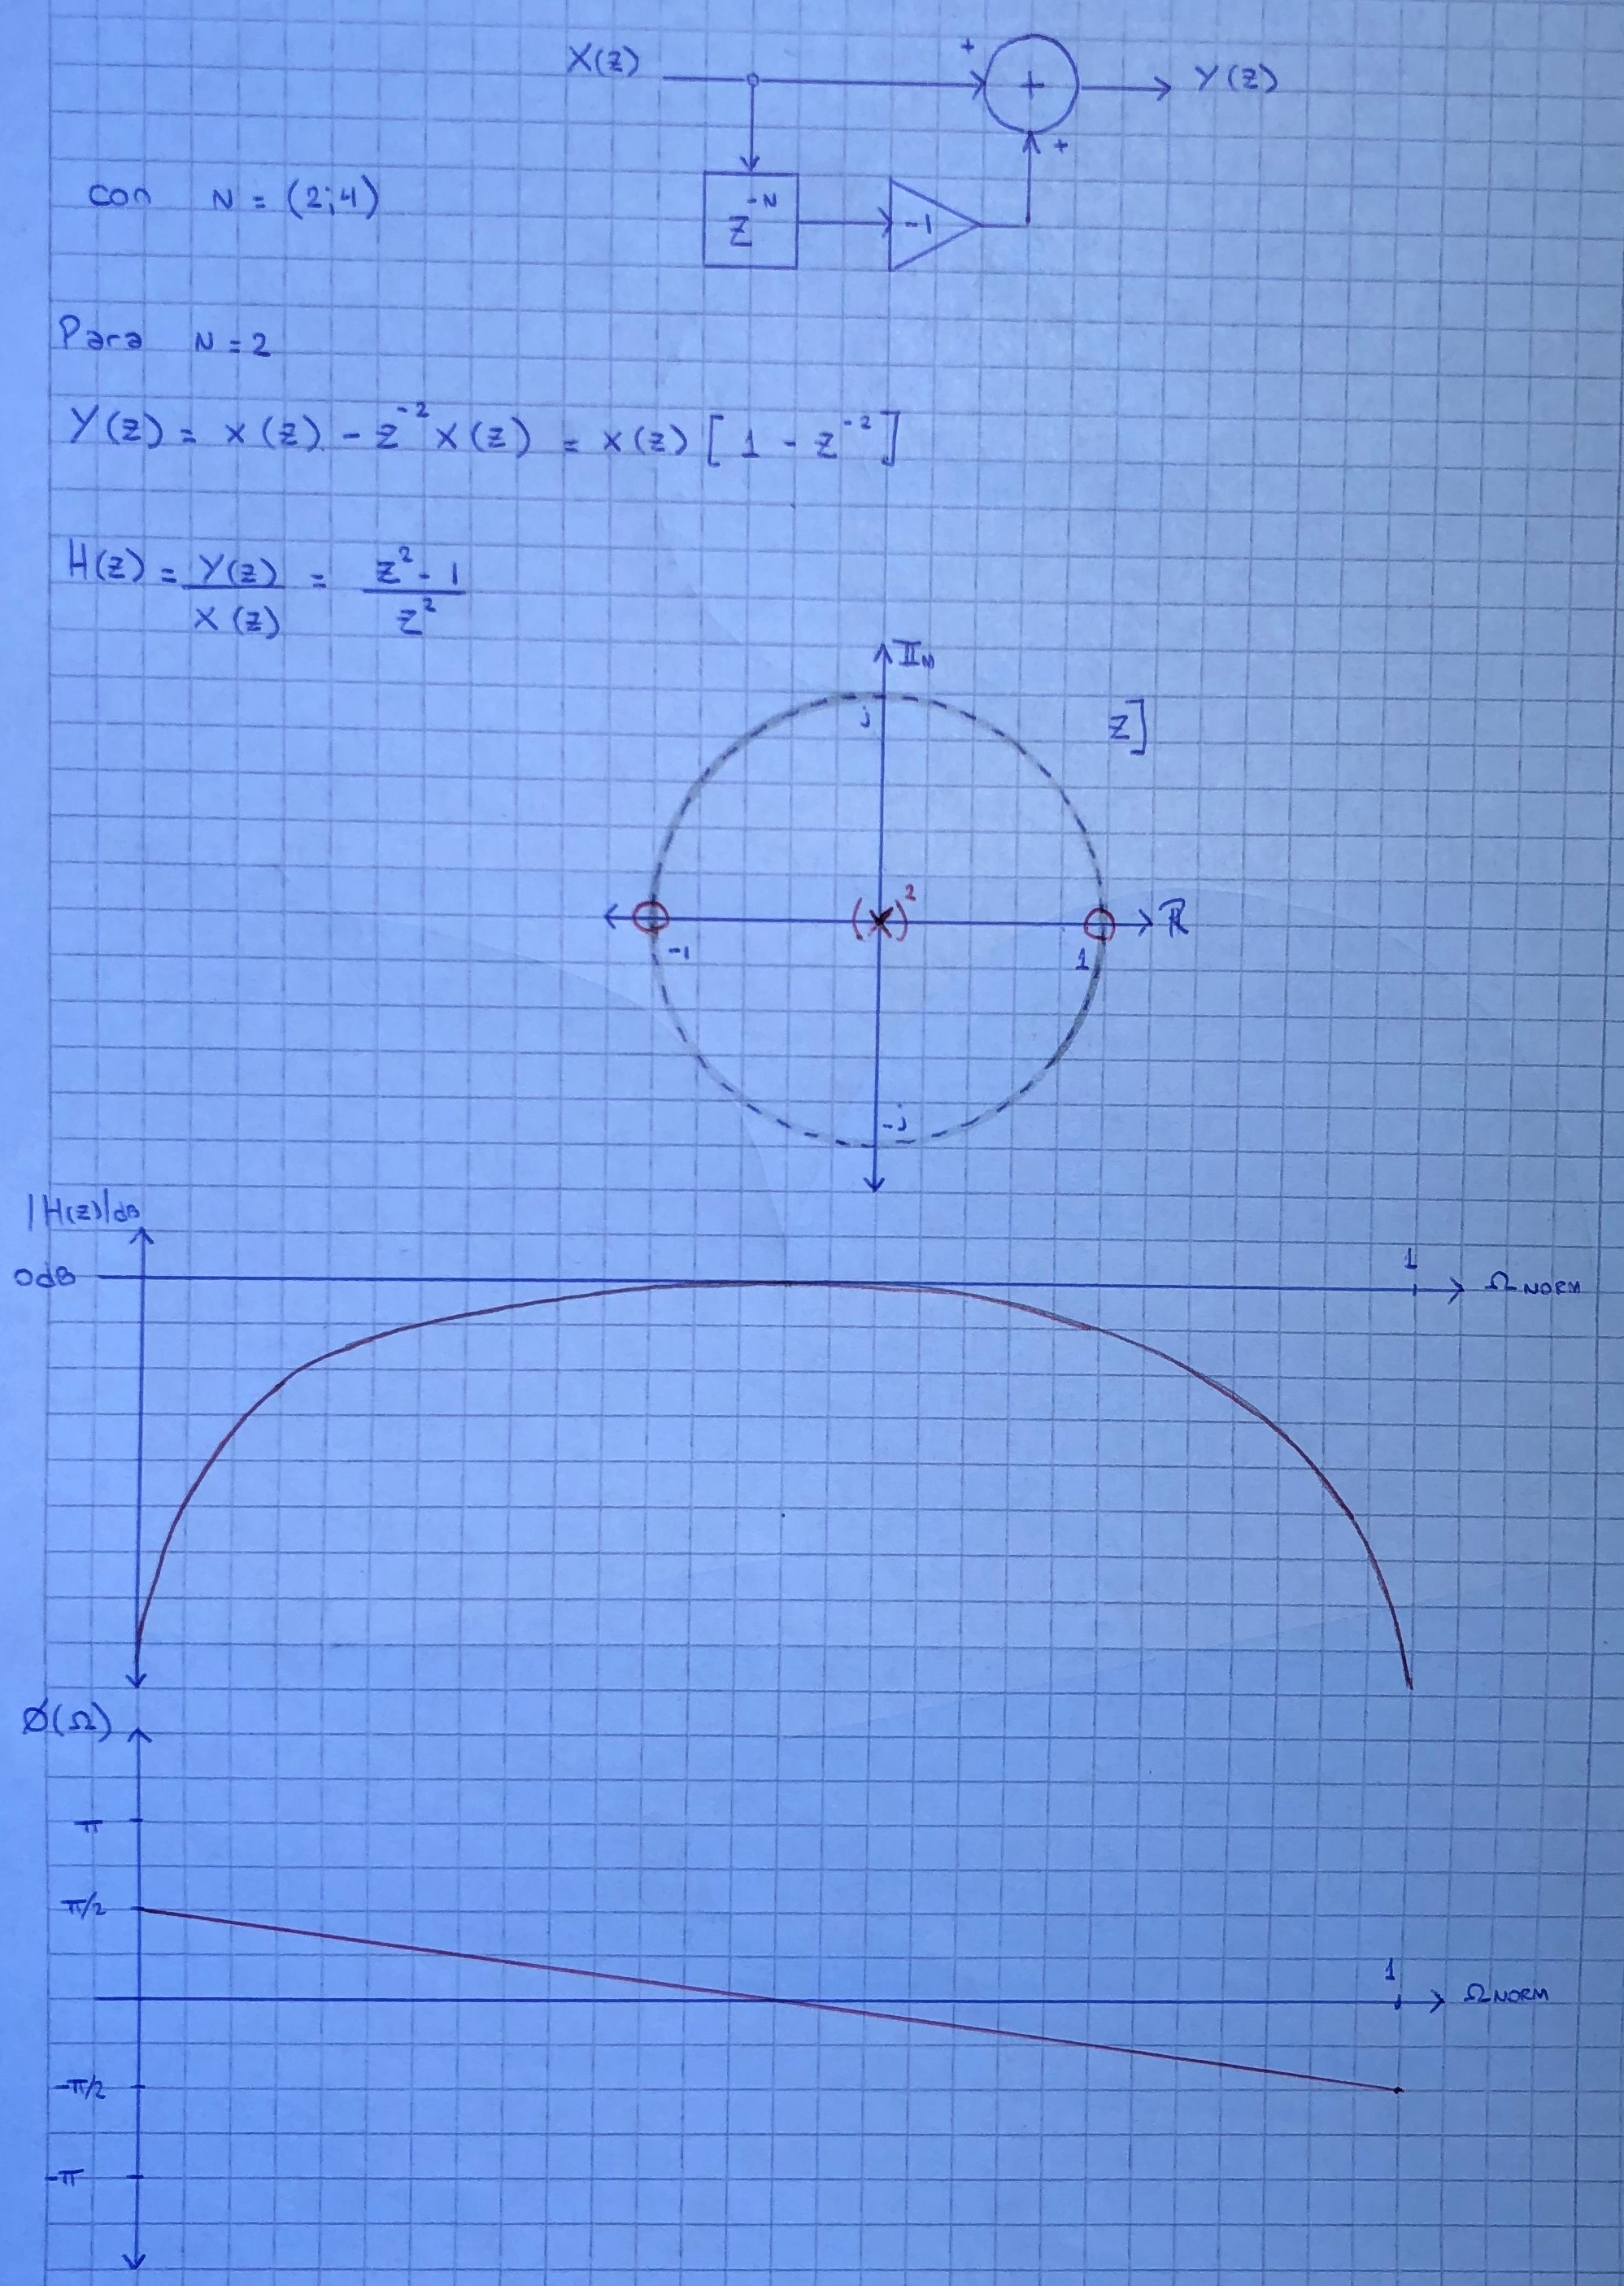 X(z) + + Y(z)
+
con N = (2;4) z^-N -1
Para N = 2
Y(z) = x(z) - z^-2 X(z) = x(z) [1 - z^-2]
H(z) = Y(z) / X(z) = z^2 - 1 / z^2
Im
j z]
(x)^2 ℝ
-1 1
-j
|H(z)|dB
0dB 1 Ω NORM
Ø(Ω)
π
π/2
1 Ω NORM
-π/2
-π